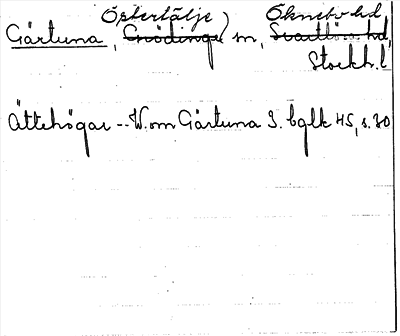 Östertälje) Öknebo hd
Gärtuna, Grödinge m, Svartlösa hd,
Stockh. l.
Ättehögar -- W. om Gärtuna S. bglk 45, s. 30